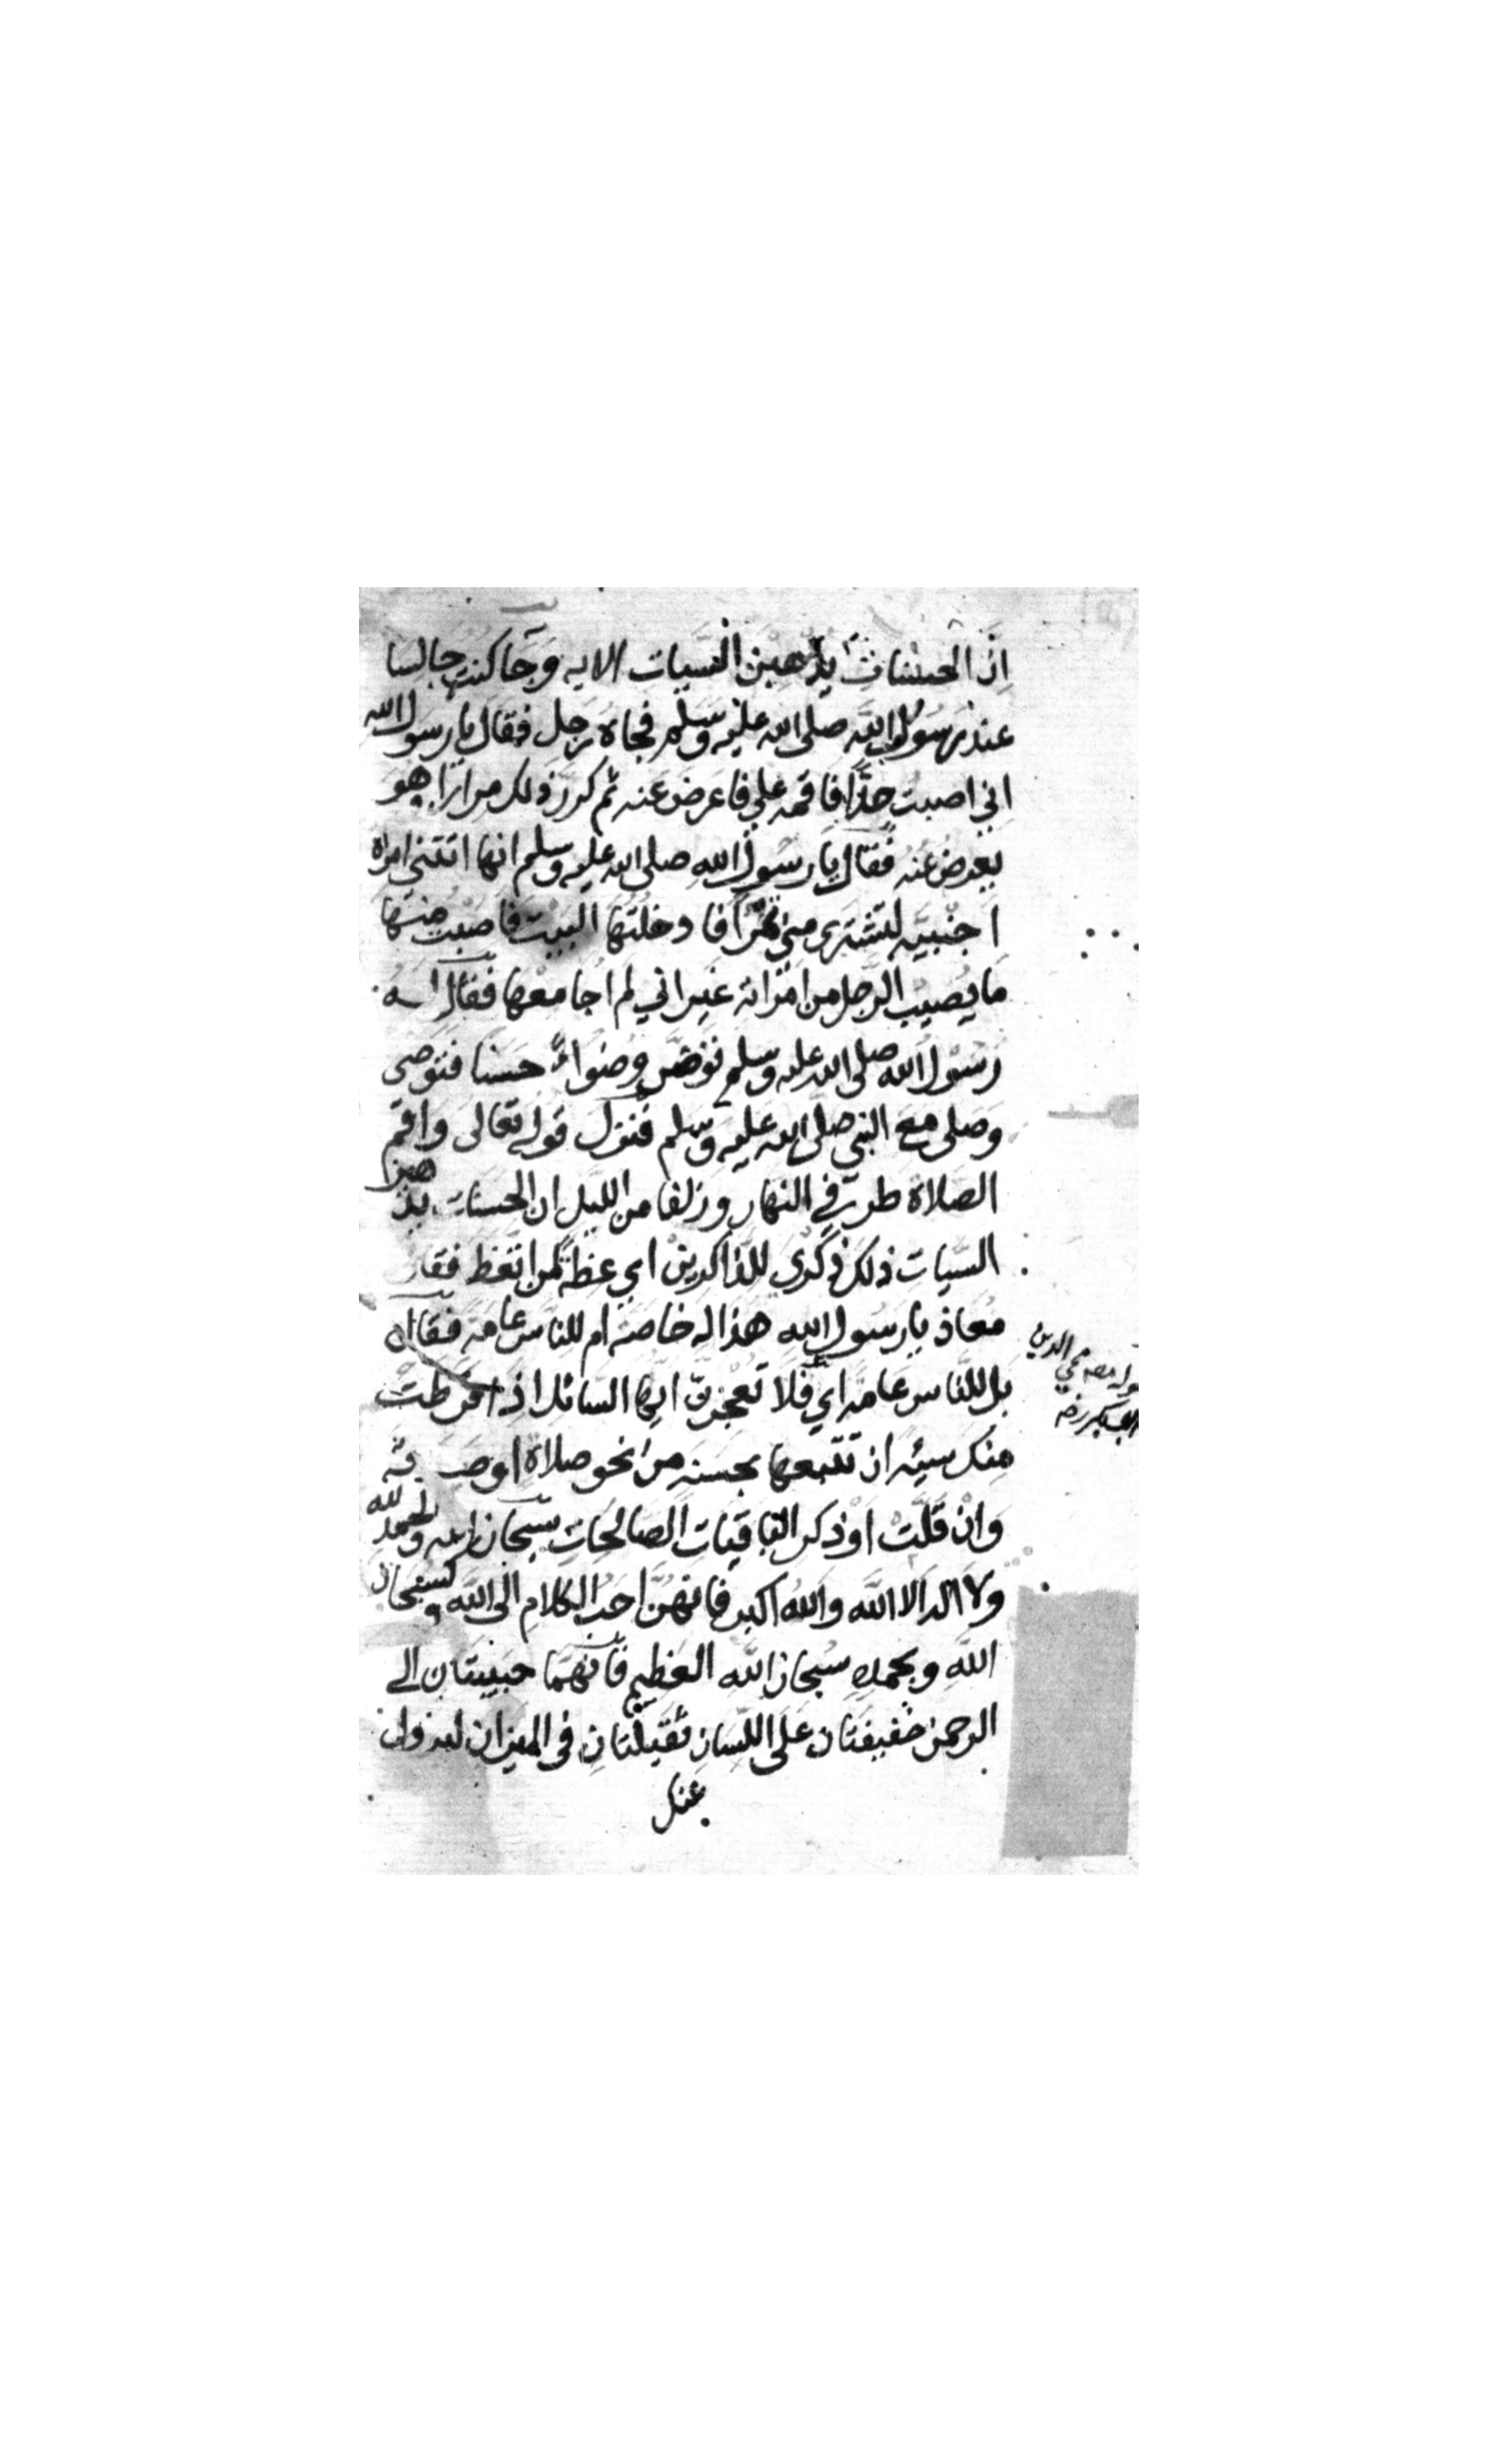 اِنَّ الحسنات يذهبن السيات الايه وجا كنت جالسا
عند رسول الله صلى الله عليه وسلم فجاه رجل فقال يا رسول الله
اني اصبت حدًّا فاقمه علي فاعرض عنه ثم كرر ذلك مرارا وهو
يعرض عنه فقال يا رسول الله صلى الله عليه وسلم انها اتتني امراة
اجنبيه لتشتري مني تمرًا فادخلتها البيت فاصبت منها
ما يصيب الرجل من امراته غير اني لم اجامعها فقال له
رسول الله صلى الله عليه وسلم توضى وضواءً حسنا فتوضى
وصلى مع النبي صلى الله عليه وسلم فنزل قوله تعالى واقم
الصلاة طرفي النهار وزلفا من الليل ان الحسنات يذهبن
السيات ذلك ذكرى للذاكرين اي عظةً لمن اتعظ فقال
معاذ يا رسول الله هذا له خاصة ام للناس عامة فقال
بل للناس عامة اي فلا تعجزن ايها السائل اذا فرطت
منك سيئه ان تتبعها بحسنه من نحو صلاة او صدقة
وان قلّت او ذكر الباقيات الصالحات سبحان الله والحمد لله
ولا اله الا الله والله اكبر فانهنّ احب الكلام الى الله وكسبحان
الله وبحمده سبحان الله العظيم فانهما حبيبتان الى
الرحمن خفيفتان على اللسان ثقيلتان في الميزان ليزول
عنك
محي الدين